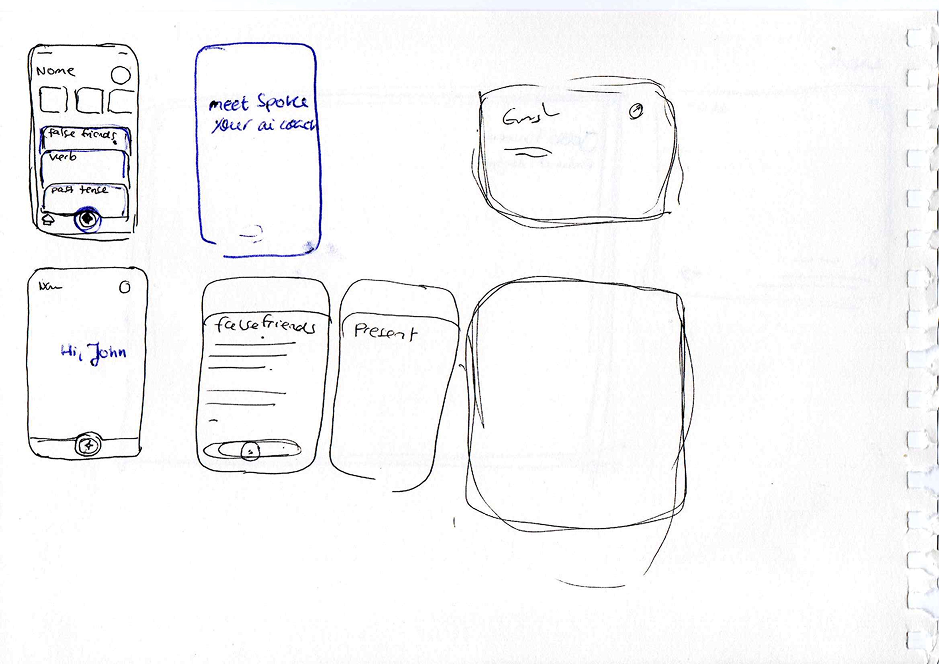 Nome
false friends
verb
past tense
meet Spoke
your ai coach
Hi, John
false friends
Present